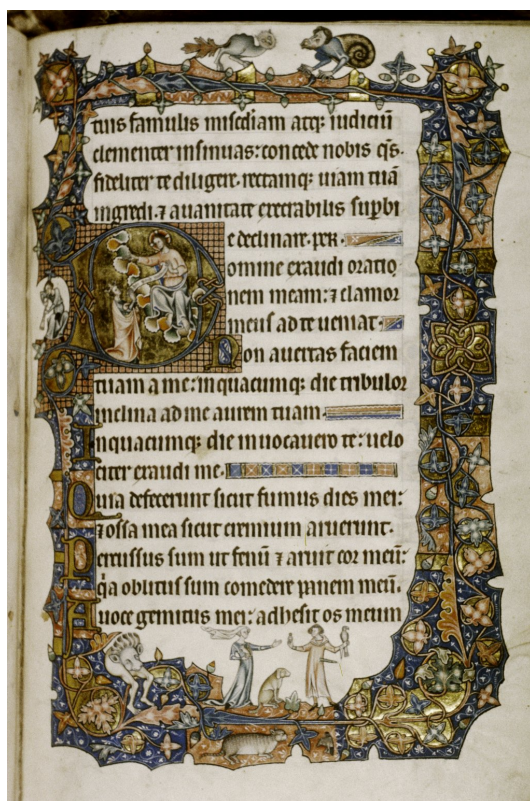 tuis famulis miscdiam atq; iudiciū
clementer insinuas: concede nobis q̄s.
fideliter te diligere. rectamq; uiam tuā
ingredi. ⁊ auanitate execrabilis supbi
e declinare. per.
Domine exaudi oratio
nem meam: ⁊ clamor
meus ad te ueniat.
Non auertas faciem
tuam a me: in quacumq; die tribulor
inclina ad me aurem tuam.
In quacumq; die inuocauero te: uelo
citer exaudi me.
Quia defecerunt sicut fumus dies mei:
⁊ ossa mea sicut cremium aruerunt.
Percussus sum ut fenū ⁊ aruit cor meū:
q̇a oblitus sum comedere panem meū.
A uoce gemitus mei: adhesit os meum